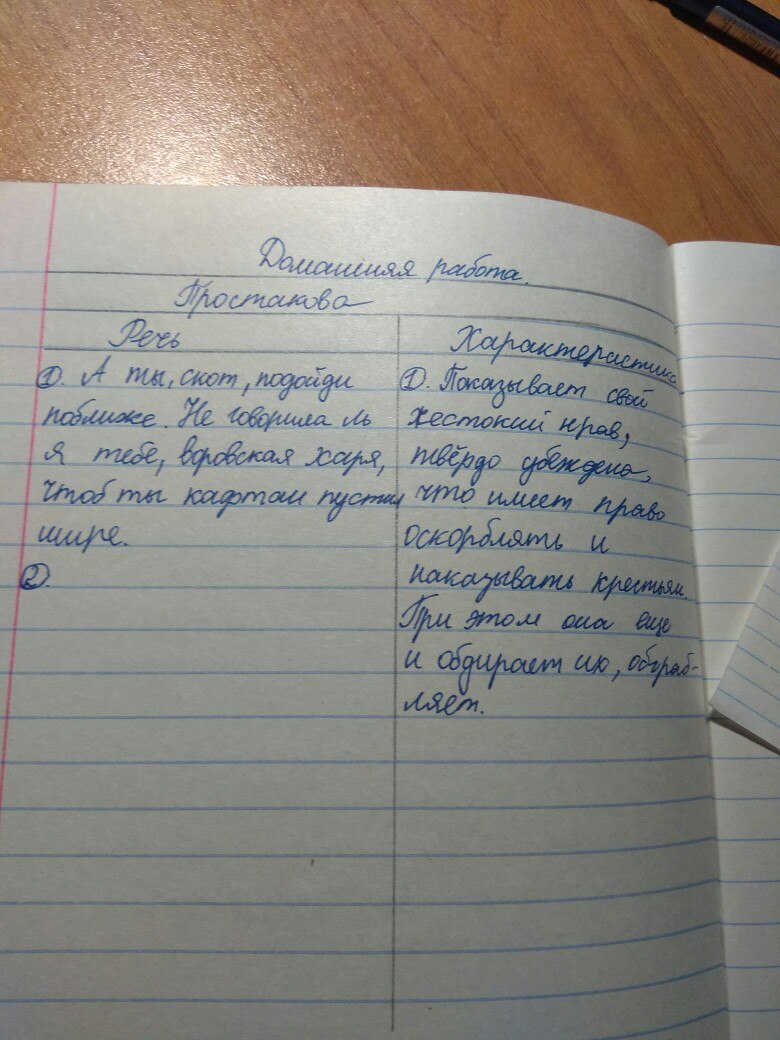 Домашняя работа.
Простакова
Речь
①. А ты, скот, подойди
поближе. Не говорила ль
я тебе, воровская харя,
чтоб ты кафтан пустил
шире.
②.
Характеристика
①. Показывает свой
жестокий нрав,
твёрдо убеждена,
что имеет право
оскорблять и
наказывать крестьян.
При этом она еще
и обдирает их, обграб-
ляет.